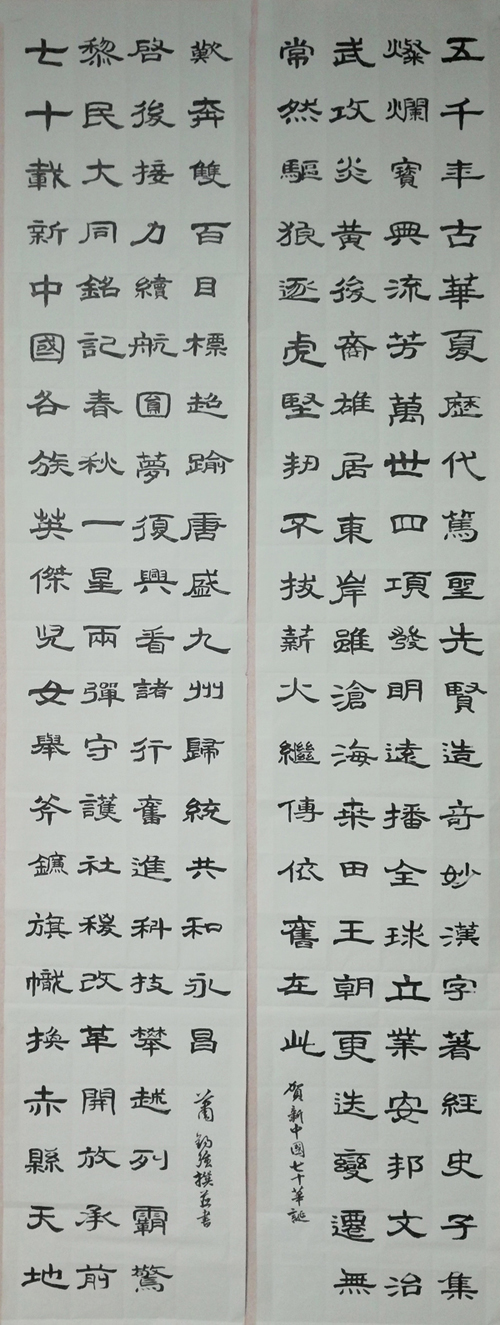 五千年古華夏歷代篤聖先賢造奇妙漢字著經史子集
燦爛寶典流芳萬世四項發明遠播全球立業安邦文治
武攻炎黃後裔雄居東岸雖滄海桑田王朝更迭變遷無
常然驅狼逐虎堅韧不拔薪火繼傳依舊在此
贺新中國七十華誕
七十載新中國各族英傑兒女舉斧鐮旗幟換赤縣天地
黎民大同銘記春秋一星兩彈守護社稷改革開放承前
啓後接力續航圓夢復興看諸行奮進科技攀越列霸驚
歎奔雙百目標超踰唐盛九州歸統共和永昌
蕭 撰并書